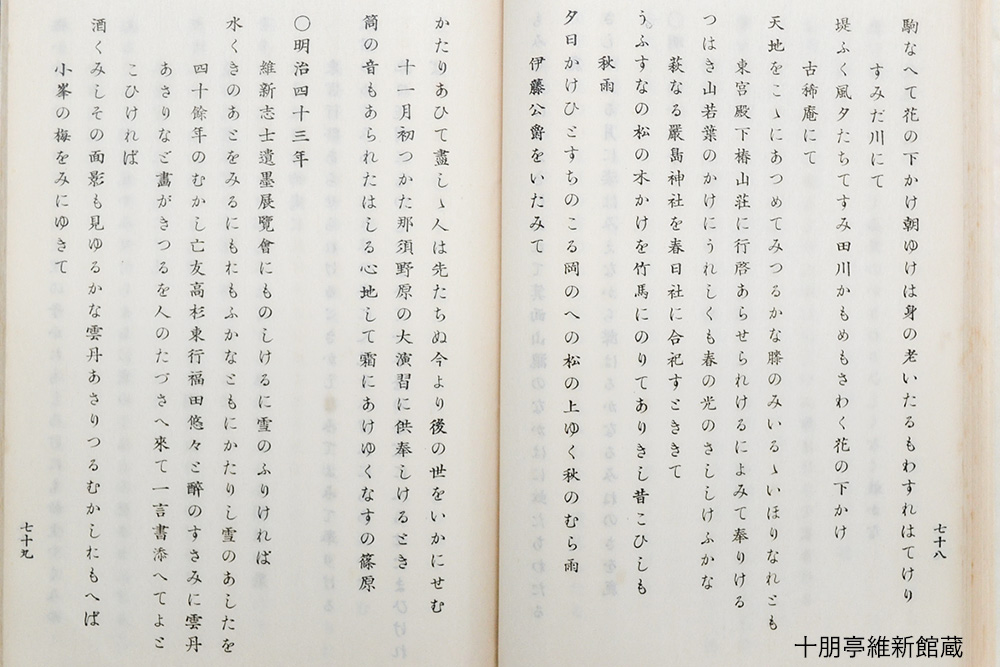 駒なへて花の下かけ朝ゆけは身の老いたるもわすれはてけり
すみだ川にて
堤ふく風夕たちてすみ田川かもめもさわく花の下かけ
古稀庵にて
天地をこゝにあつめてみつるかな膝のみいるゝいほりなれとも
東宮殿下椿山荘に行啓あらせられけるによみて奉りける
つはき山若葉のかけにうれしくも春の光のさしゝけふかな
萩なる嚴島神社を春日社に合祀すとききて
うふすなの松の木かけを竹馬にのりてありきし昔こひしも
秋雨
夕日かけひとすちのこる岡のへの松の上ゆく秋のむら雨
伊藤公爵をいたみて
七十八
かたりあひて盡しゝ人は先たちぬ今より後の世をいかにせむ
十一月初つかた那須野原の大演習に供奉しけるとき
筒の音もあられたはしる心地して霜にあけゆくなすの篠原
〇明治四十三年
維新志士遺墨展覽會にものしけるに雪のふりければ
水くきのあとをみるにもおもふかなともにかたりし雪のあしたを
四十餘年のむかし亡友高杉東行福田悠々と醉のすさみに雲丹
あさりなど畵がきつるを人のたづさへ來て一言書添へてよと
こひければ
酒くみしその面影も見ゆるかな雲丹あさりつるむかしおもへば
小峯の梅をみにゆきて
七十九
十朋亭維新館蔵